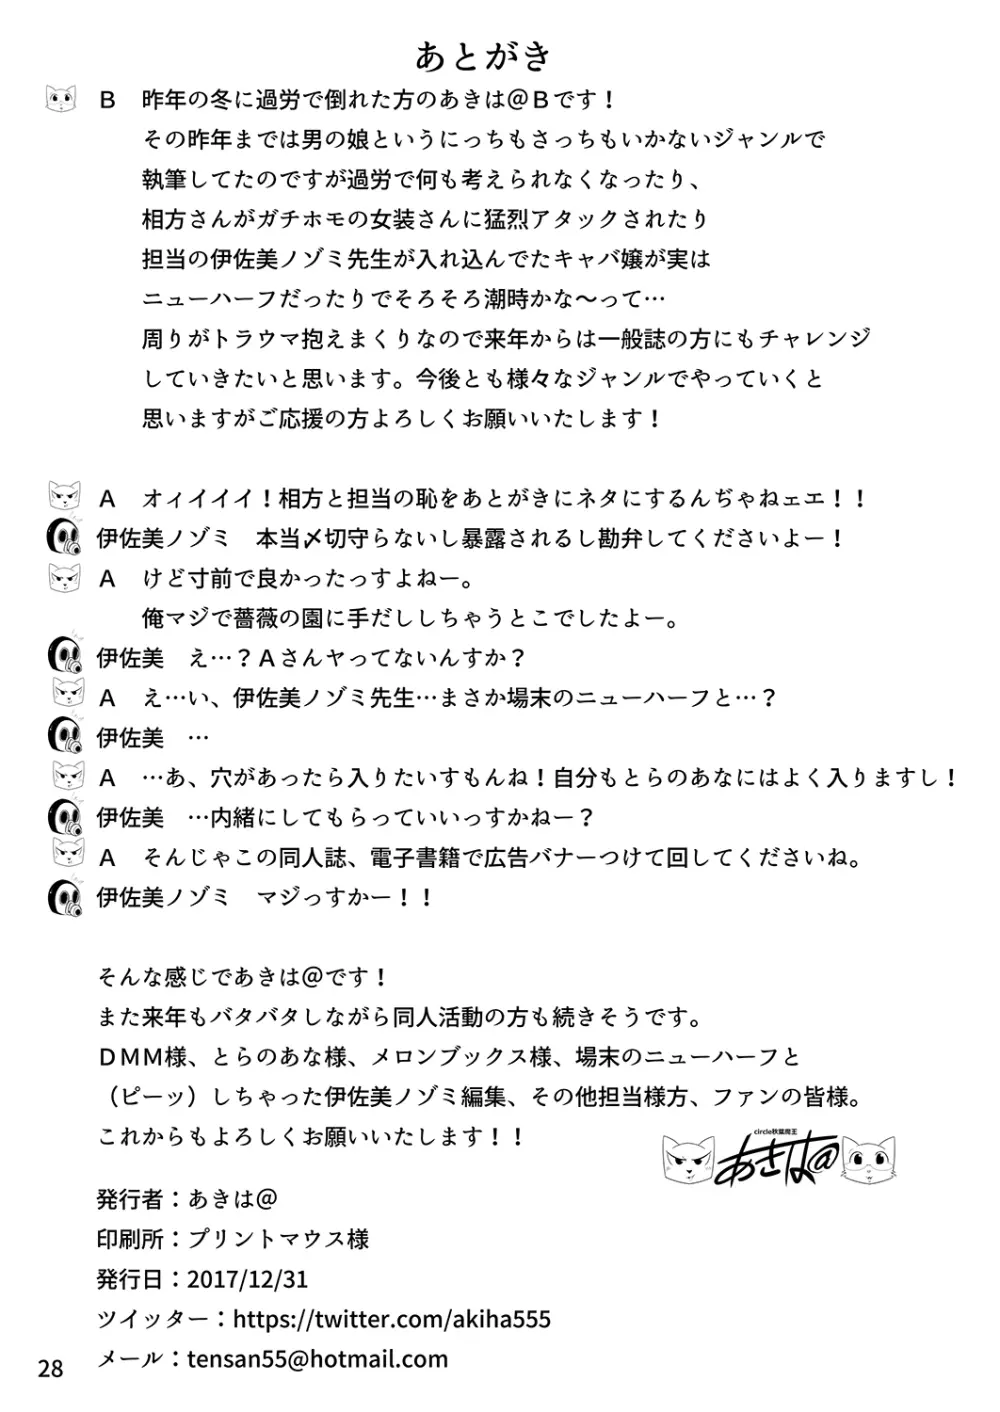 あとがき
B　昨年の冬に過労で倒れた方のあきは＠Bです！
その昨年までは男の娘というにっちもさっちもいかないジャンルで
執筆してたのですが過労で何も考えられなくなったり、
相方さんがガチホモの女装さんに猛烈アタックされたり
担当の伊佐美ノゾミ先生が入れ込んでたキャバ嬢が実は
ニューハーフだったりでそろそろ潮時かな～って…
周りがトラウマ抱えまくりなので来年からは一般誌の方にもチャレンジ
していきたいと思います。今後とも様々なジャンルでやっていくと
思いますがご応援の方よろしくお願いいたします！
A　オィイイイ！相方と担当の恥をあとがきにネタにするんぢゃねェエ！！
伊佐美ノゾミ　本当〆切守らないし暴露されるし勘弁してくださいよー！
A　けど寸前で良かったっすよねー。
俺マジで薔薇の園に手だししちゃうとこでしたよー。
伊佐美　え…？Aさんヤってないんすか？
A　え…い、伊佐美ノゾミ先生…まさか場末のニューハーフと…？
伊佐美　…
A　…あ、穴があったら入りたいすもんね！自分もとらのあなにはよく入りますし！
伊佐美　…内緒にしてもらっていいっすかねー？
A　そんじゃこの同人誌、電子書籍で広告バナーつけて回してくださいね。
伊佐美ノゾミ　マジっすかー！！
そんな感じであきは＠です！
また来年もバタバタしながら同人活動の方も続きそうです。
ＤＭＭ様、とらのあな様、メロンブックス様、場末のニューハーフと
（ピーッ）しちゃった伊佐美ノゾミ編集、その他担当様方、ファンの皆様。
これからもよろしくお願いいたします！！
circle秋葉魔王
あきは@
発行者：あきは＠
印刷所：プリントマウス様
発行日：2017/12/31
ツイッター：https://twitter.com/akiha555
メール：tensan55@hotmail.com
28